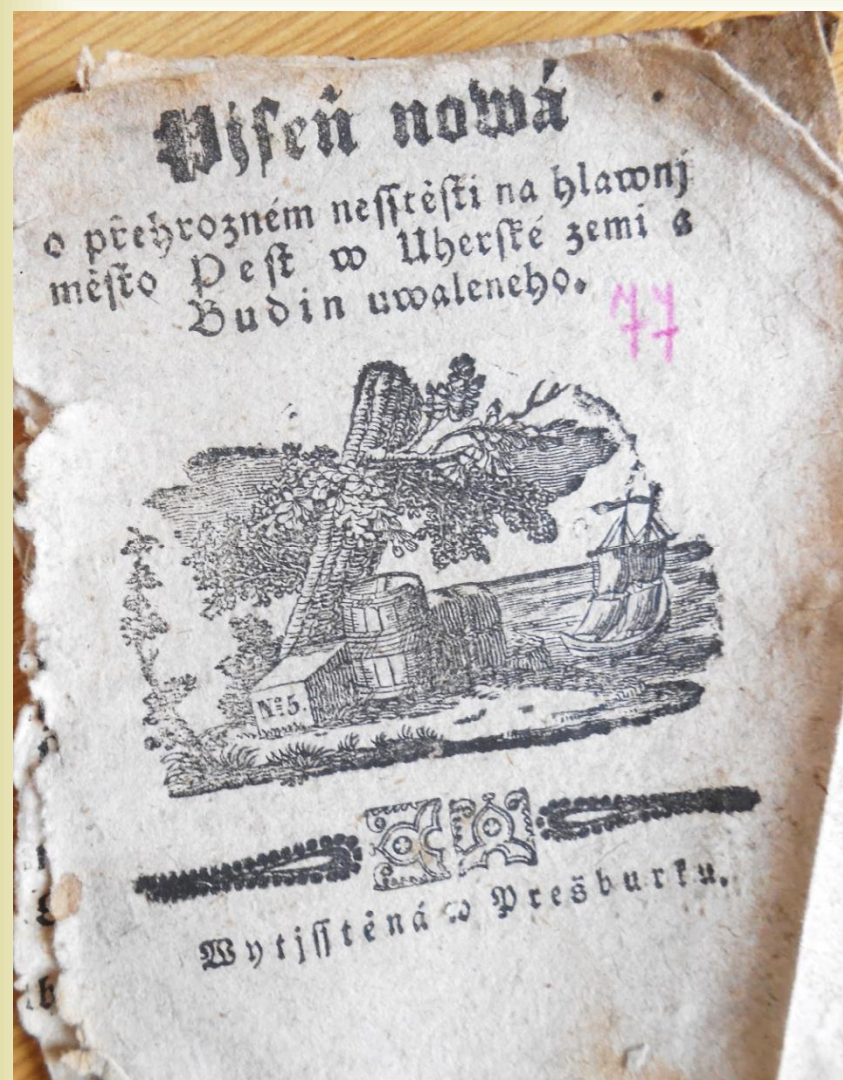 Pjseň nowá
o přehrozném nesstěstj na hlawnj
město Pest w Uherské zemi a
Budin uwaleneho.
77
No 5.
Wytjsstěná w Prešburku.